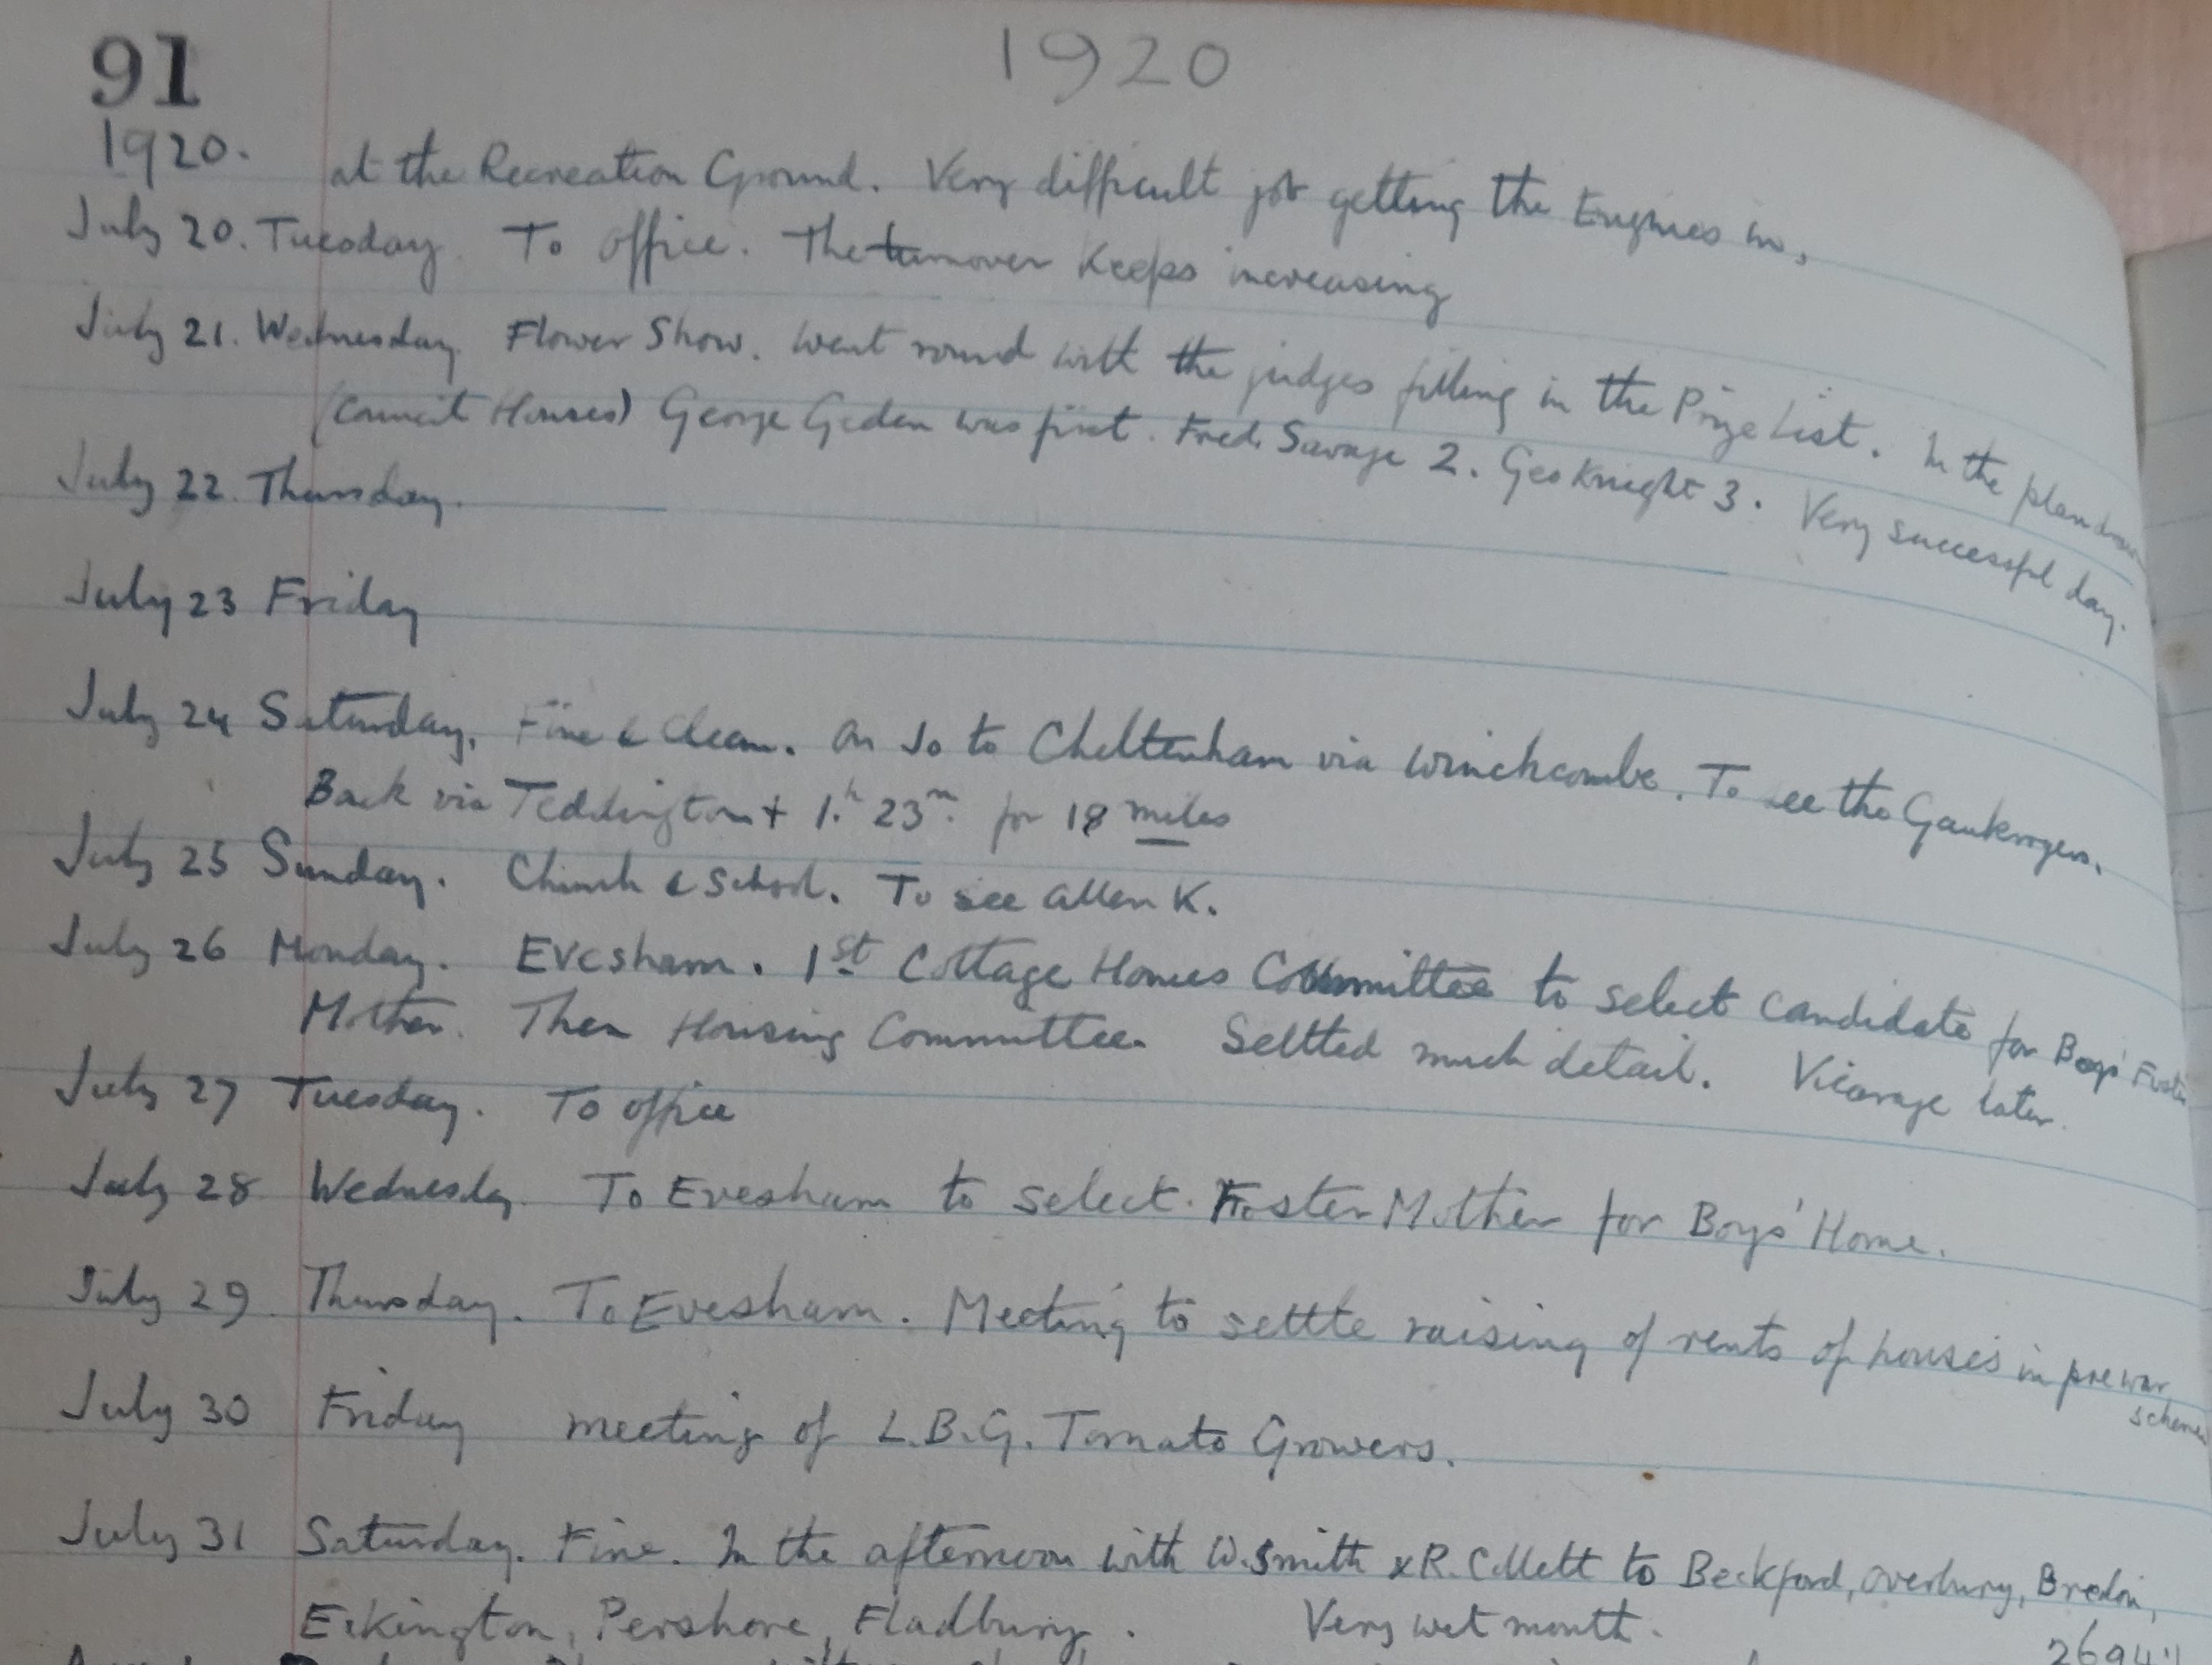 91
1920
1920. at the Recreation Ground. Very difficult job getting the Engines in.
July 20. Tuesday. To office. The turnover keeps increasing
July 21. Wednesday. Flower Show. Went round with the judges filling in the Prize List. In the
(Council Houses) George Geden was first. Fred. Savage 2. Geo Knight 3. Very successful day.
July 22. Thursday.
July 23 Friday
July 24 Saturday. Fine & clear. On Jo to Cheltenham via Winchcombe. To see the Gaukrogers.
Back via Teddington + 1.h 23m. for 18 miles
July 25 Sunday. Church & School. To see Allen K.
July 26 Monday. Evesham. 1st Cottage Homes Committee to select candidate for Boys' Foster
Mother. Then Housing Committee. Settled much detail. Vicarage later.
July 27 Tuesday. To office
July 28 Wednesday. To Evesham to select Foster Mother for Boys' Home.
July 29 Thursday. To Evesham. Meeting to settle raising of rents of houses in pre war
schemes
July 30 Friday meeting of L.B.G. Tomato Growers.
July 31 Saturday. Fine. In the afternoon with W. Smith & R. Collett to Beckford, Overbury, Bredon,
Eckington, Pershore, Fladbury. Very wet month.